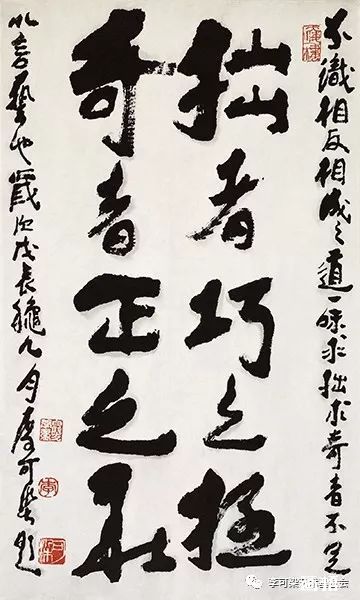 不識相反相成之道一味求拙求奇者不足
拙者巧之極
奇者正之
以言藝也歲次戊辰龝九月李可染題
李可染